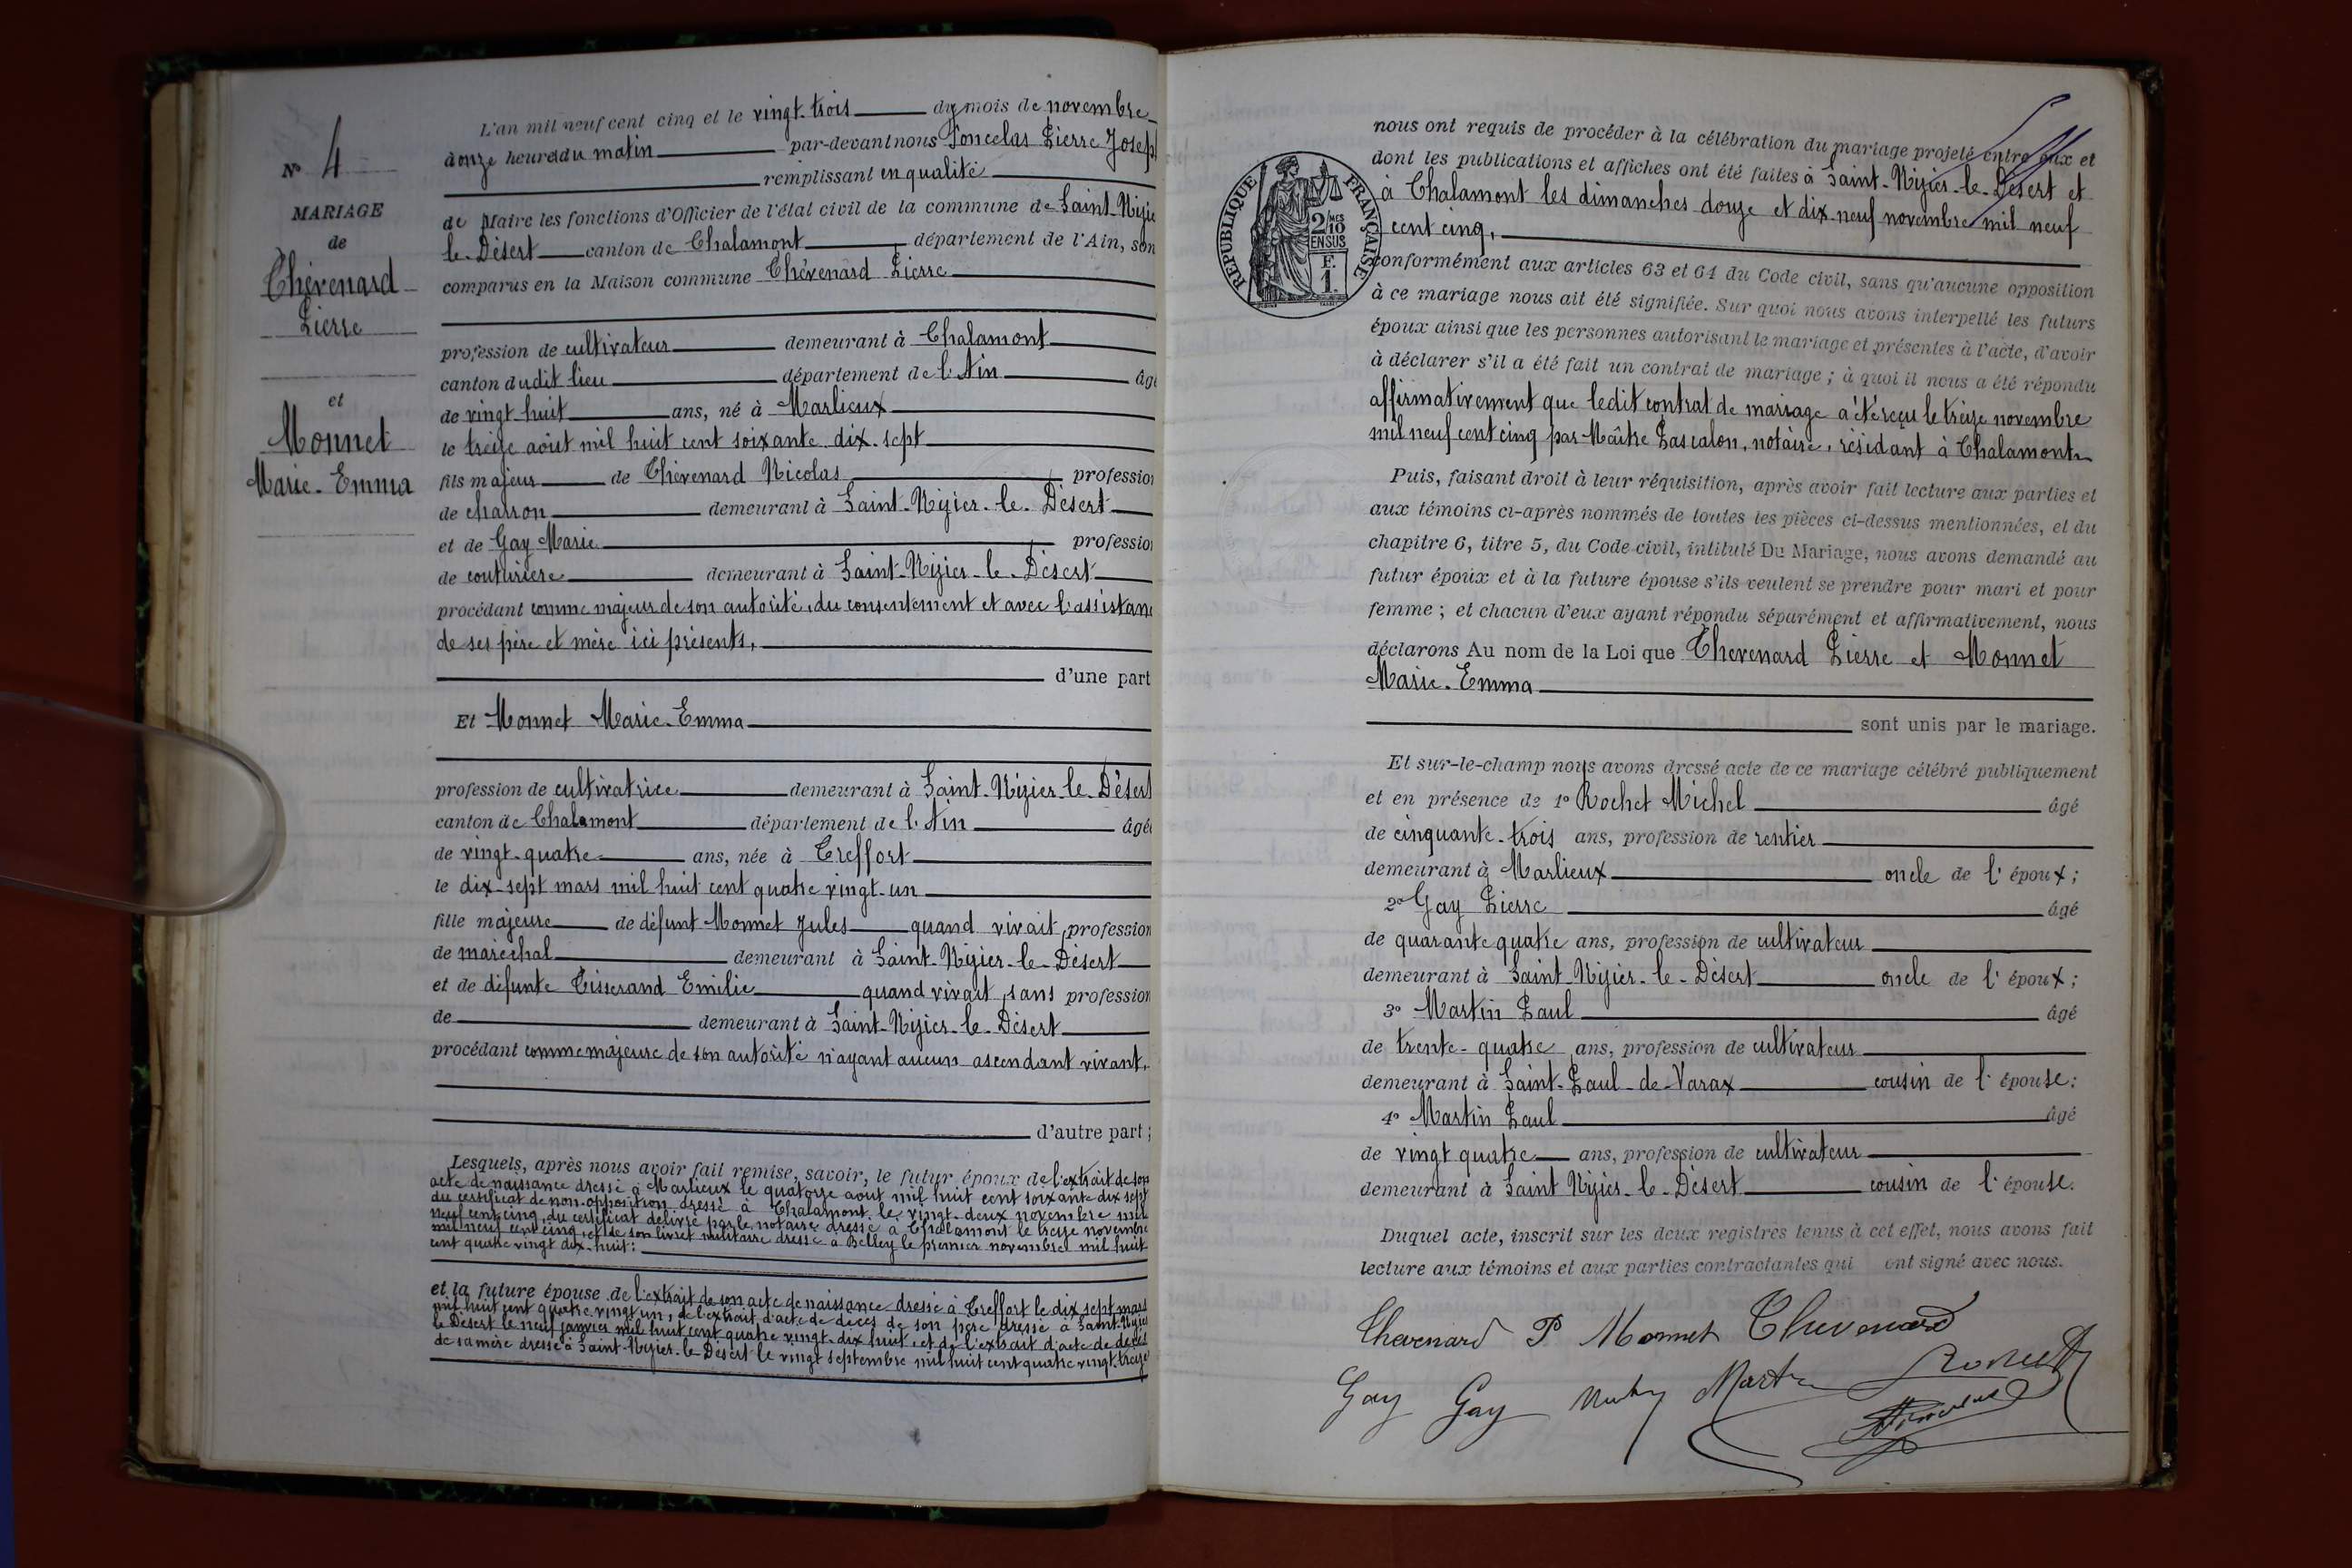 N° 4
MARIAGE
de
Chèvenard
Pierre
et
Monnet
Marie-Emma
L'an mil neuf cent cinq et le vingt-trois du mois de novembre
à onze heures du matin par-devant nous Poncelas Pierre Joseph
remplissant en qualité
de Maire les fonctions d'Officier de l'état civil de la commune de Saint-Nizier
le-Désert canton de Chalamont, département de l'Ain, son
comparus en la Maison commune Chèvenard Pierre
profession de cultivateur demeurant à Chalamont
canton dudit lieu département de l'Ain âgé
de vingt-huit ans, né à Marlieux
le treize août mil huit cent soixante-dix-sept
fils majeur de Chèvenard Nicolas profession
de charron demeurant à Saint-Nizier-le-Désert
et de Gay Marie profession
de couturière demeurant à Saint-Nizier-le-Désert
procédant comme majeur de son autorité, du consentement et avec l'assistance
de ses père et mère ici présents,
d'une part
Et Monnet Marie-Emma
profession de cultivatrice demeurant à Saint-Nizier-le-Désert
canton de Chalamont département de l'Ain âgée
de vingt-quatre ans, née à Treffort
le dix-sept mars mil huit cent quatre vingt-un
fille majeure de défunt Monnet Jules quand vivait, profession
de maréchal demeurant à Saint-Nizier-le-Désert
et de défunte Tisserand Emilie quand vivait, sans profession
de demeurant à Saint-Nizier-le-Désert
procédant comme majeure de son autorité n'ayant aucun ascendant vivant.
d'autre part ;
Lesquels, après nous avoir fait remise, savoir, le futur époux de l'extrait de son
acte de naissance dressé à Marlieux le quatorze août mil huit cent soixante dix sept
du certificat de non-opposition dressé à Chalamont le vingt-deux novembre mil
neuf cent cinq, du certificat délivré par le notaire dressé à Chalamont le treize novembre
mil neuf cent cinq, et de son livret militaire dressé à Belley le premier novembre mil huit
cent quatre vingt dix-huit :
et la future épouse de l'extrait de son acte de naissance dressé à Treffort le dix sept mars
mil huit cent quatre vingt un, de l'extrait d'acte de décès de son père dressé à Saint-Nizier
le Désert le neuf janvier mil huit cent quatre vingt-dix huit, et de l'extrait d'acte de décès
de sa mère dressé à Saint-Nizier-le-Désert le vingt septembre mil huit cent quatre vingt-treize
RÉPUBLIQUE FRANÇAISE
2/10 MES
EN SUS
F.
1.
nous ont requis de procéder à la célébration du mariage projeté entre eux et
dont les publications et affiches ont été faites à Saint-Nizier-le-Désert et
à Chalamont les dimanches douze et dix-neuf novembre mil neuf
cent cinq,
conformément aux articles 63 et 64 du Code civil, sans qu'aucune opposition
à ce mariage nous ait été signifiée. Sur quoi nous avons interpellé les futurs
époux ainsi que les personnes autorisant le mariage et présentes à l'acte, d'avoir
à déclarer s'il a été fait un contrat de mariage ; à quoi il nous a été répondu
affirmativement que ledit contrat de mariage a été reçu le treize novembre
mil neuf cent cinq par Maître Lascalon, notaire, résidant à Chalamont
Puis, faisant droit à leur réquisition, après avoir fait lecture aux parties et
aux témoins ci-après nommés de toutes les pièces ci-dessus mentionnées, et du
chapitre 6, titre 5, du Code civil, intitulé Du Mariage, nous avons demandé au
futur époux et à la future épouse s'ils veulent se prendre pour mari et pour
femme ; et chacun d'eux ayant répondu séparément et affirmativement, nous
déclarons Au nom de la Loi que Chevenard Pierre et Monnet
Marie-Emma
sont unis par le mariage.
Et sur-le-champ nous avons dressé acte de ce mariage célébré publiquement
et en présence de 1° Rochet Michel âgé
de cinquante-trois ans, profession de rentier
demeurant à Marlieux oncle de l'époux ;
2° Gay Pierre âgé
de quarante quatre ans, profession de cultivateur
demeurant à Saint-Nizier-le-Désert oncle de l'époux ;
3° Martin Paul âgé
de trente-quatre ans, profession de cultivateur
demeurant à Saint-Paul-de-Varax cousin de l'épouse ;
4° Martin Paul âgé
de vingt quatre ans, profession de cultivateur
demeurant à Saint Nizier-le-Désert cousin de l'épouse.
Duquel acte, inscrit sur les deux registres tenus à cet effet, nous avons fait
lecture aux témoins et aux parties contractantes qui ont signé avec nous.
Chevenard P Monnet Chevenard
Gay Gay Martin